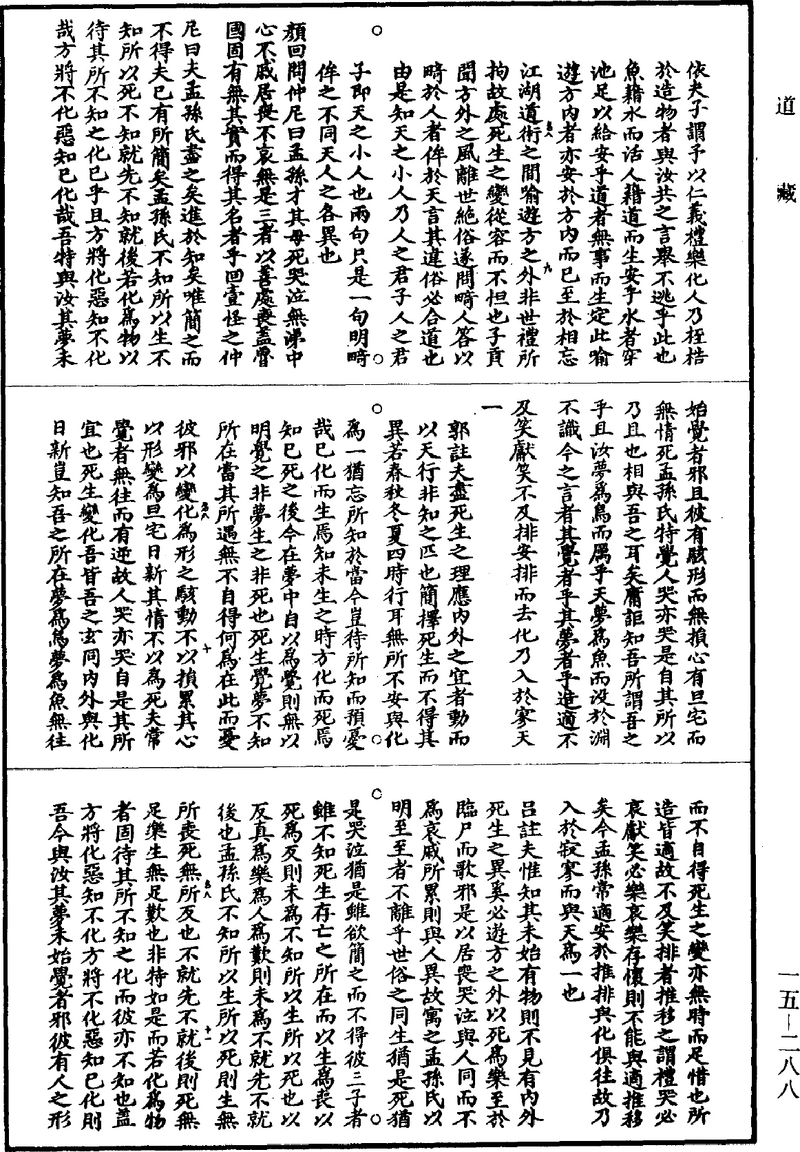 道藏
依夫子謂予以仁義禮樂化人乃桎梏
於造物者與汝共之言舉不逃乎此也
魚藉水而活人藉道而生安乎水者穿
池足以給安乎道者無事而生定此喻
遊方內者亦安於方內而已至於相忘
江湖道術之間喻遊方之外非世禮所
拘故處死生之變從容而不怛也子貢
聞方外之風離世絕俗遂問畸人答以
畸於人者侔於天言其違俗必合道也
由是知天之小人乃人之君子人之君
子即天之小人也兩句只是一句明畸
侔之不同天人之各異也
顏回問仲尼曰孟孫才其母死哭泣無涕中
心不慼居喪不哀無是三者以善處喪蓋魯
國固有無其實而得其名者乎回壹怪之仲
尼曰夫孟孫氏盡之矣進於知矣唯簡之而
不得夫已有所簡矣孟孫氏不知所以生不
知所以死不知就先不知就後若化為物以
待其所不知之化已乎且方將化惡知不化
哉方將不化惡知已化哉吾特與汝其夢未
始覺者邪且彼有駭形而無損心有旦宅而
無情死孟孫氏特覺人哭亦哭是自其所以
乃且也相與吾之耳矣庸詎知吾所謂吾之
乎且汝夢為鳥而厲乎天夢為魚而沒於淵
不識今之言者其覺者乎其夢者乎造適不
及笑獻笑不及排安排而去化乃入於寥天
一
郭註夫盡死生之理應內外之宜者動而
以天行非知之匹也簡擇死生而不得其
異若春秋冬夏四時行耳無所不安與化
為一猶忘所知於當今豈待所知而預憂
哉已化而生焉知未生之時方化而死焉
知已死之後今在夢中自以為覺則無以
明覺之非夢生之非死也死生覺夢不知
所在當其所遇無不自得何為在此而憂
彼邪以變化為形之駭動不以損累其心
以形變為旦宅日新其情不以為死夫常
覺者無往而有逆故人哭亦哭自是其所
宜也死生變化吾皆吾之玄同內外與化
日新豈知吾之所在夢為鳥夢為魚無往
而不自得死生之變亦無時而足惜也所
造皆適故不及笑排者推移之謂禮哭必
哀獻笑必樂哀樂存懷則不能與適推移
矣今孟孫常適安於推排與化俱往故乃
入於寂寥而與天為一也
呂註夫惟知其未始有物則不見有內外
死生之異奚必遊方之外以死為樂至於
臨尸而歌邪是以居喪哭泣與人同而不
為哀戚所累則與人異故寓之孟孫氏以
明至至者不離乎世俗之同生猶是死猶
是哭泣猶是雖欲簡之而不得彼三子者
雖不知死生存亡之所在而以生為喪以
死為反則未為不知所以生所以死也以
反真為樂為人為歎則未為不就先不就
後也孟孫氏不知所以生所以死則生無
所喪死無所反也不就先不就後則死無
足樂生無足歎也非特如是而若化為物
者固待其所不知之化而彼亦不知也蓋
方將化惡知不化方將不化惡知已化則
吾今與汝其夢未始覺者邪彼有人之形
一五—二八八